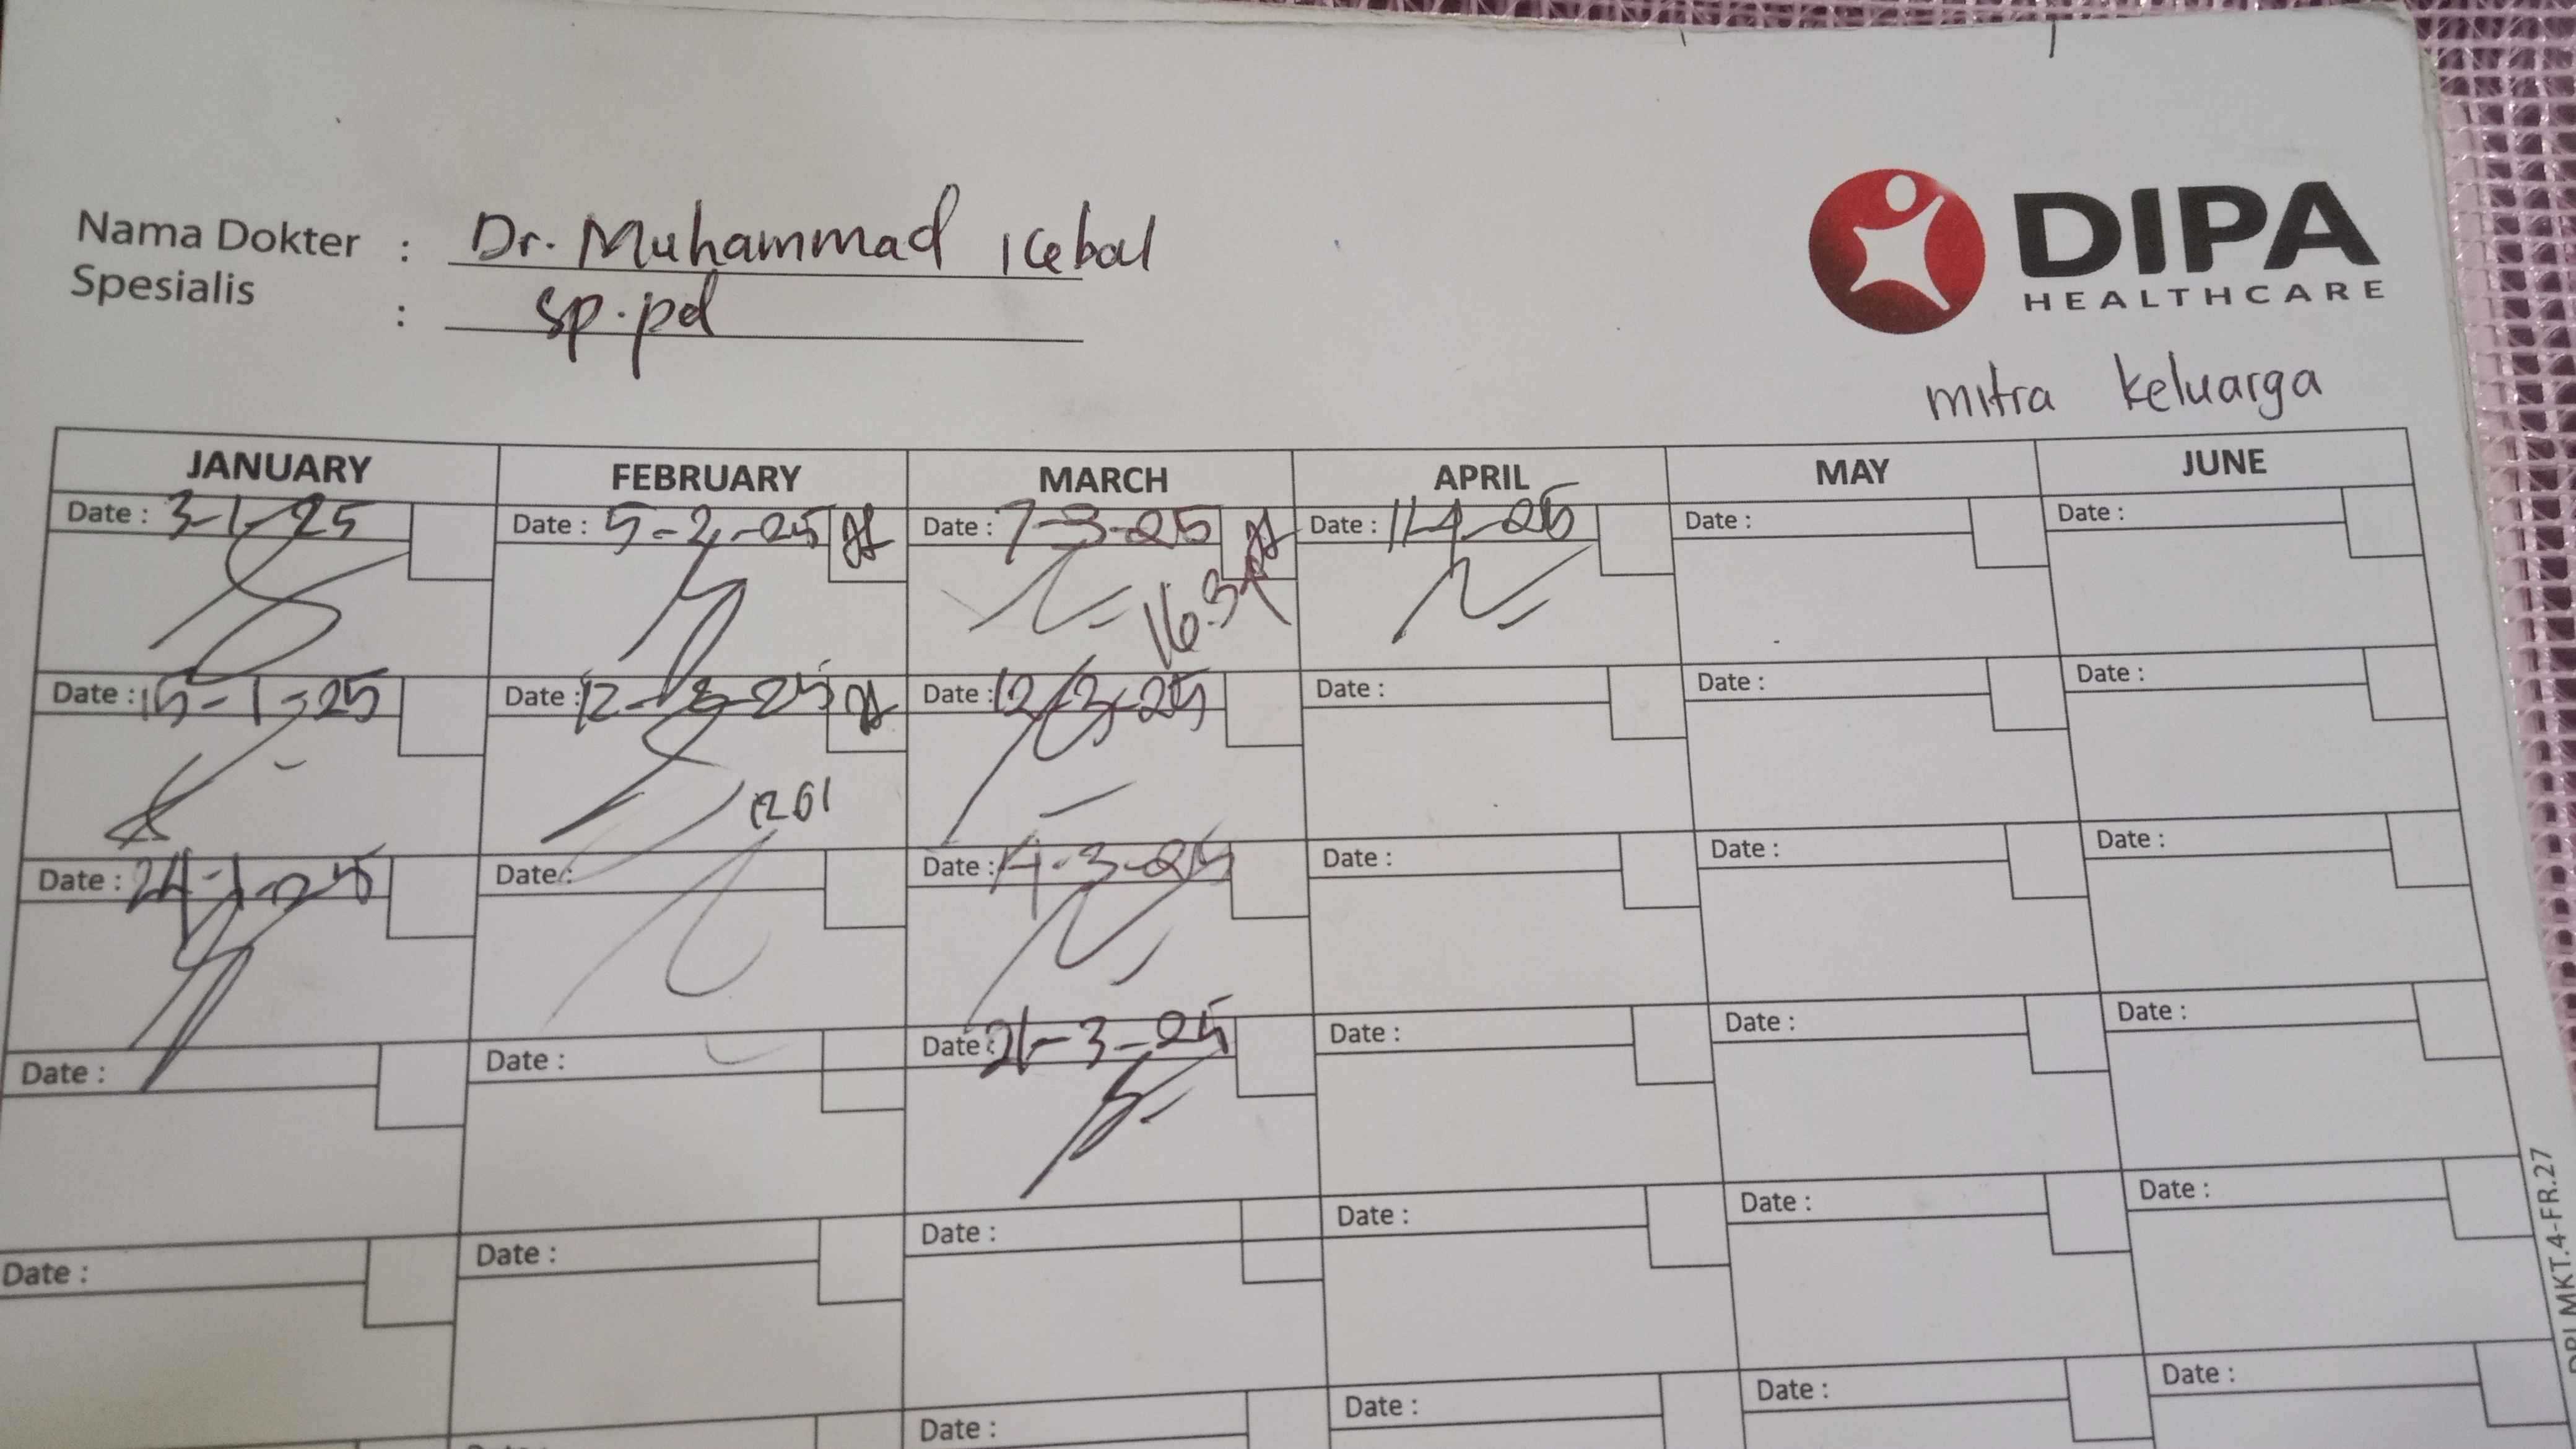 Nama Dokter : Dr. Muhammad Icebal
Spesialis : sp.pd
DIPA
HEALTHCARE
mitra keluarga
JANUARY FEBRUARY MARCH APRIL MAY JUNE
Date : 3-1-25 Date : 5-2-25 Date : 7-3-25 Date : 11-4-25 Date : Date :
Date : 15-1-25 Date : 12-2-25 Date : 12-3-25 Date : Date : Date :
Date : 24-1-25 Date : Date : 14-3-25 Date : Date : Date :
Date : Date : Date : 21-3-25 Date : Date : Date :
Date : Date : Date : Date : Date : Date :
Date : Date : Date : Date :
MKT.4-FR.27